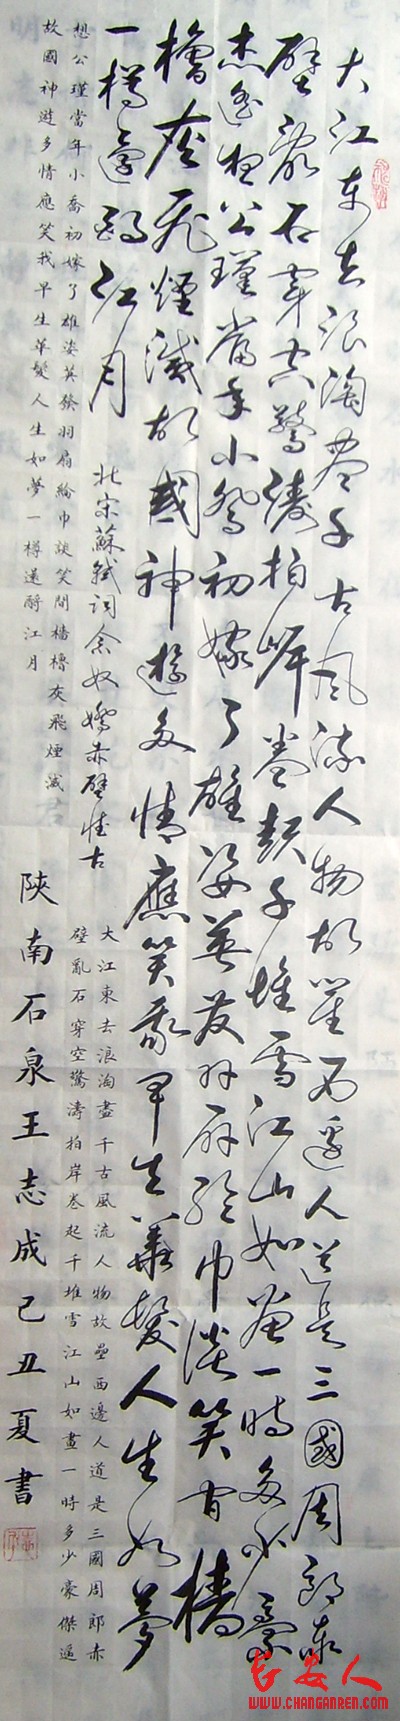 大江东去浪淘盡千古風流人物故壘西邊人道是三國周郎赤
壁亂石穿空驚濤拍岸卷起千堆雪江山如畫一時多少豪
杰遙想公瑾當年小喬初嫁了雄姿英發羽扇綸巾談笑間檣
櫓灰飛煙滅故國神遊多情應笑我早生華髮人生如夢
一樽還酹江月
北宋蘇軾詞念奴嬌赤壁懷古
大江東去浪淘盡千古風流人物故壘西邊人道是三國周郎赤
壁亂石穿空驚濤拍岸卷起千堆雪江山如畫一時多少豪傑遥
想公瑾當年小喬初嫁了雄姿英發羽扇綸巾談笑間檣櫓灰飛煙滅
故國神遊多情應笑我早生華髮人生如夢一樽還酹江月
陝南石泉王志成己丑夏書
长安人
WWW.CHANGANREN.COM